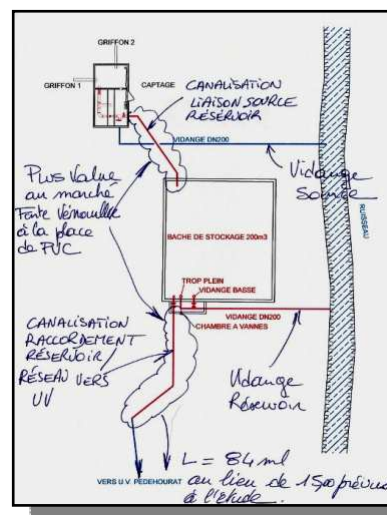 GRIFFON 2
GRIFFON 1
CAPTAGE
CANALISATION
LIAISON SOURCE
RÉSERVOIR
VIDANGE DN200
Vidange
Source
RUISSEAU
Plus Value
au marché
Fonte Verrouillée
à la place
de PVC
BACHE DE STOCKAGE 200m3
TROP PLEIN
VIDANGE BASSE
VIDANGE DN200
CHAMBRE A VANNES
CANALISATION
RACCORDEMENT
RÉSERVOIR/
RÉSEAU VERS
UV
Vidange
Réservoir
VERS U.V. PEDEHOURAT
L = 84 ml
au lieu de 1500 prévus
à l'étude.